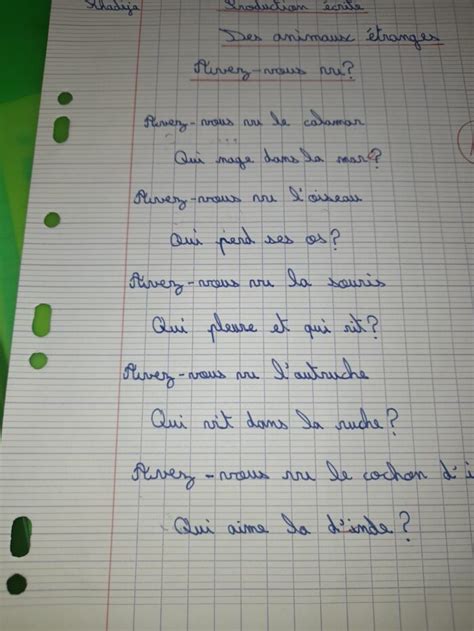 Khadija Production écrite
Des animaux étranges
Avez-vous vu?
Avez-vous vu le calamar
Qui nage dans la mar?
Avez-vous vu l'oiseau
Qui perd ses os?
Avez-vous vu la souris
Qui pleure et qui rit?
Avez-vous vu l'autruche
Qui vit dans la ruche?
Avez-vous vu le cochon d'i
Qui aime la d'inde?